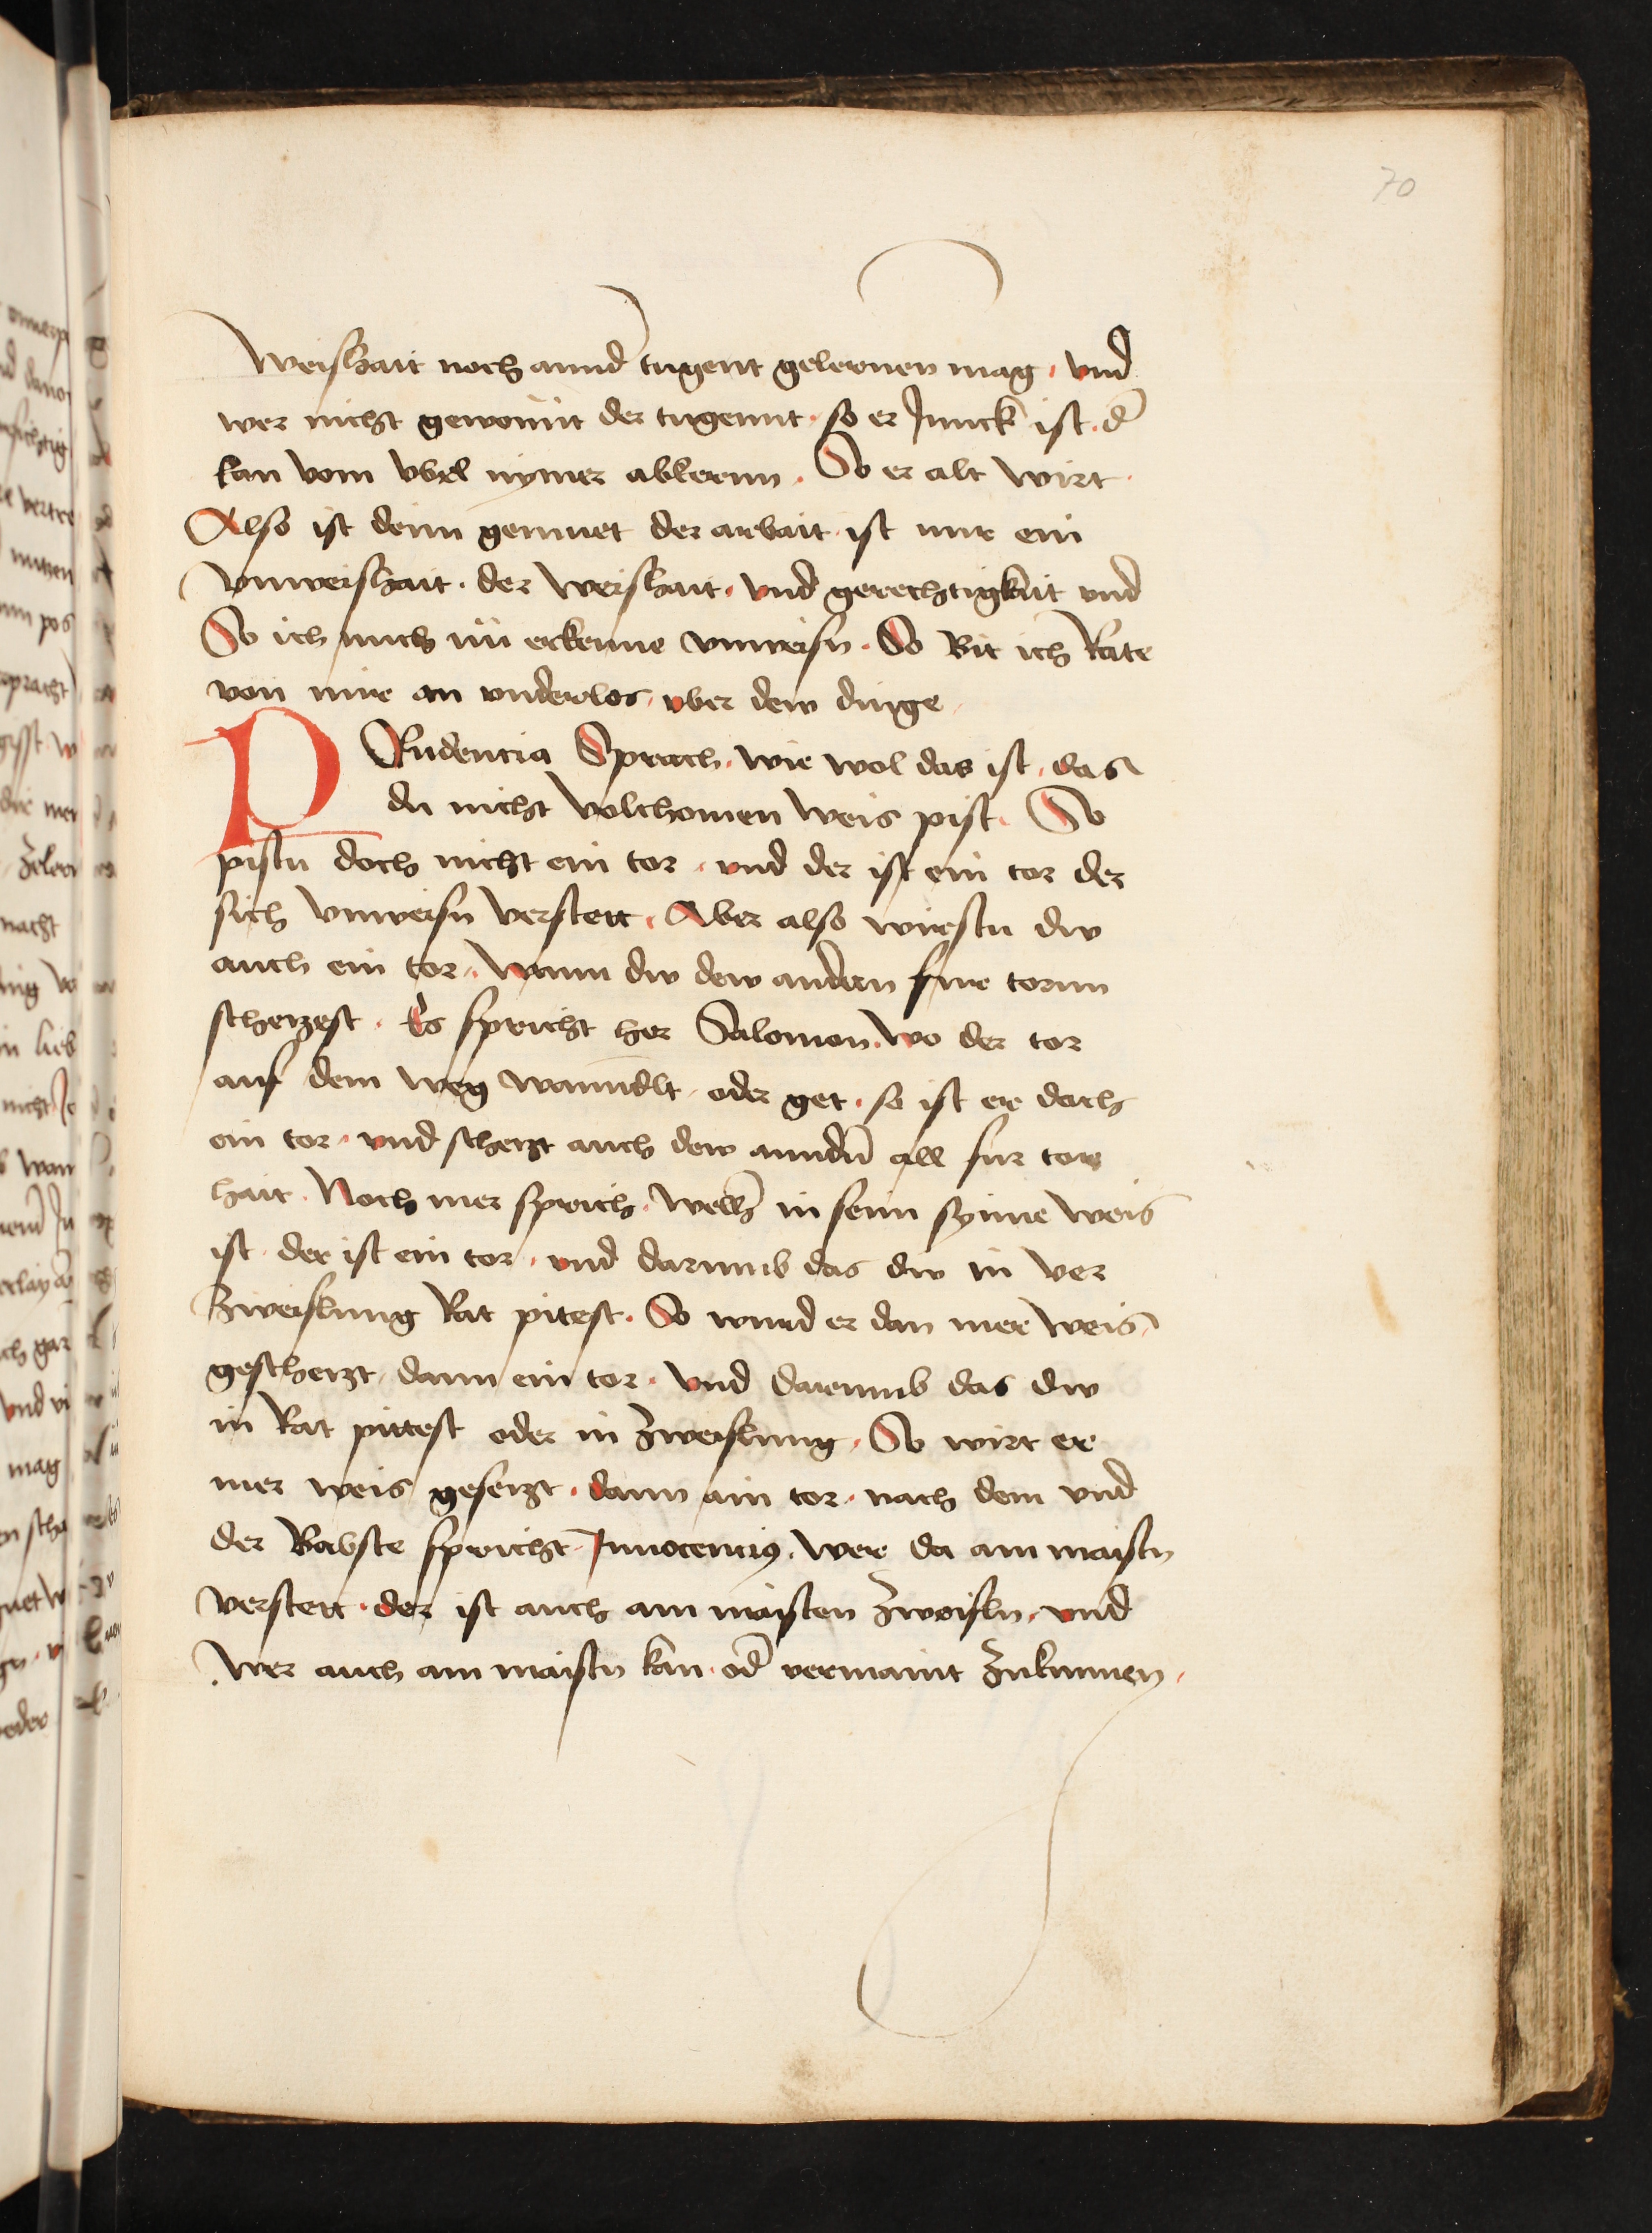 70
Weishait noch annd̄ tugent gelernen mag · vnd
wer nicht gewonnt der tugennt · so er Junck ist · d̄
kan vom vbel nymer ablernn · So er alt wirt ·
Also ist deinn gemuet der arbait · ist nur ein
vnweishait · der weishait · vnd gerechtigkait vnd
So ich mich nu erkenne vnweisn · So Bit ich Rate
von mir an vnderlos · vber dew dinge
PRudencia Sprach · wie wol das ist · das
du nicht volchomen weis pist · So
pistu doch nicht ein tor · vnd der ist ein tor der
sich vnweisn verstett · Aber also wirstu dw
auch ein tor · wann dw dew andern fur tornn
scherzest · Es spricht her Salomon · wo der tor
auf dem weg wanndelt · oder get · so ist er doch
ein tor · vnd scherzt auch dew anndn̄ all fur tor
hait · Noch mer sprich · welh̄ in seinn synne weis
ist · der ist ein tor · vnd darumb das dw in ver
zweiflung Rat pitest · So wurd er dan mer weis
gescherzt dann ein tor · vnd darumb das dw
in Rat pittest oder in zweiflung · So wirt er
mer weis gesetzt · dann ain tor · nach dem vnd
der Babste spricht Innocencius · wer da am maistn
verstett · der ist auch am maisten zweifln · vnd
wer auch am maistn kan · od̄ vermaint zukunnen ·